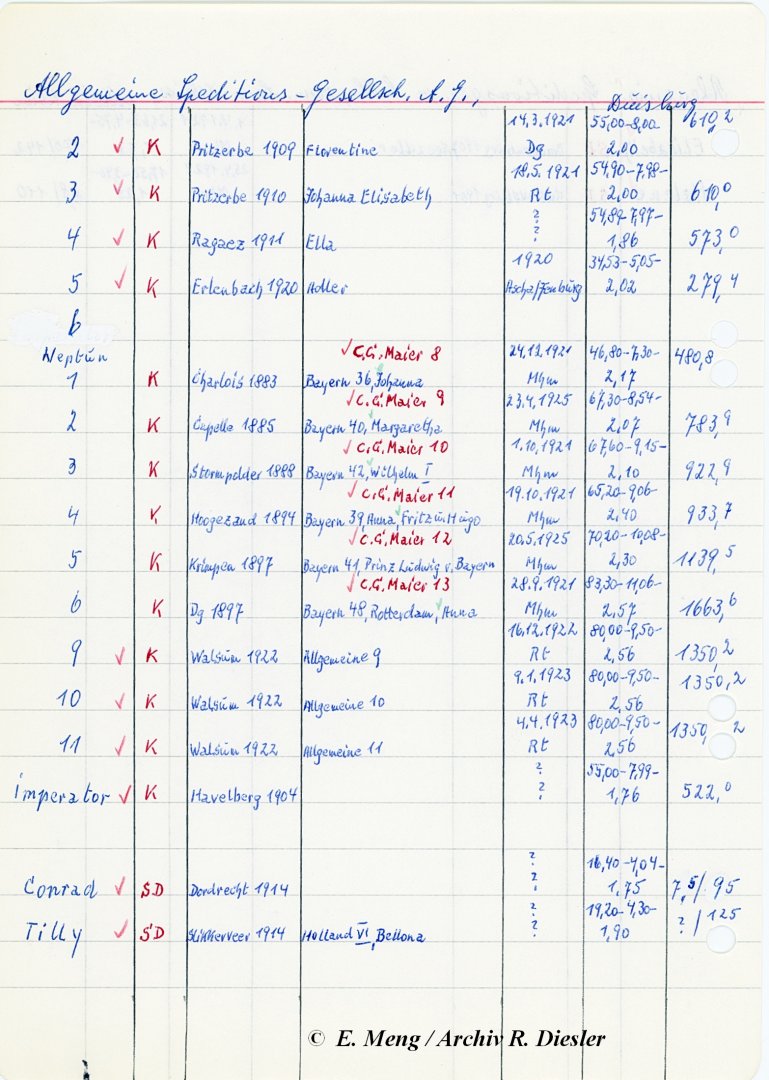 Allgemeine Speditions-Gesellsch. A.G., Duisburg
14.3.1921 55,00-8,00 610,2
2 ✓ K Pritzerbe 1909 Florentine Dg 2,00
18.5.1921 54,90-7,98-
3 ✓ K Pritzerbe 1910 Johanna Elisabeth Rt 2,00 610,0
? 54,89-7,97-
4 ✓ K Ragaez 1911 Ella ? 1,86 573,0
1920 34,53-5,05-
5 ✓ K Erlenbach 1920 Adler Aschaffenburg 2,02 279,4
6
Neptun ✓ C.G. Maier 8 24.12.1921 46,80-7,30- 480,8
1 K Charlois 1883 Bayern 36, Johanna Mhm 2,17
✓ C.G. Maier 9 23.4.1925 67,30-8,54-
2 K Capelle 1885 Bayern 40, Margaretha Mhm 2,07 783,9
✓ C.G. Maier 10 1.10.1921 67,60-9,15-
3 K Stormpolder 1888 Bayern 42, Wilhelm I Mhm 2,10 922,9
✓ C.G. Maier 11 19.10.1921 65,20-9,06-
4 K Hoogezand 1894 Bayern 39, Anna, Fritz u. Hugo Mhm 2,40 933,7
✓ C.G. Maier 12 20.5.1925 70,20-10,08-
5 K Krimpen 1897 Bayern 41, Prinz Ludwig v. Bayern Mhm 2,30 1139,5
✓ C.G. Maier 13 28.9.1921 83,30-11,06-
6 K Dg 1897 Bayern 48, Rotterdam, Anna Mhm 2,57 1663,6
16.12.1922 80,00-9,50-
9 ✓ K Walsum 1922 Allgemeine 9 Rt 2,56 1350,2
9.1.1923 80,00-9,50- 1350,2
10 ✓ K Walsum 1922 Allgemeine 10 Rt 2,56
4.4.1923 80,00-9,50- 1350,2
11 ✓ K Walsum 1922 Allgemeine 11 Rt 2,56
? 55,00-7,99-
Imperator ✓ K Havelberg 1904 ? 1,76 522,0
? 16,40-4,04-
Conrad ✓ SD Dordrecht 1914 ? 1,75 7,5/95
? 19,20-4,30-
Tilly ✓ SD Slikkerveer 1914 Holland VI, Bellona ? 1,90 ?/125
© E. Meng / Archiv R. Diesler